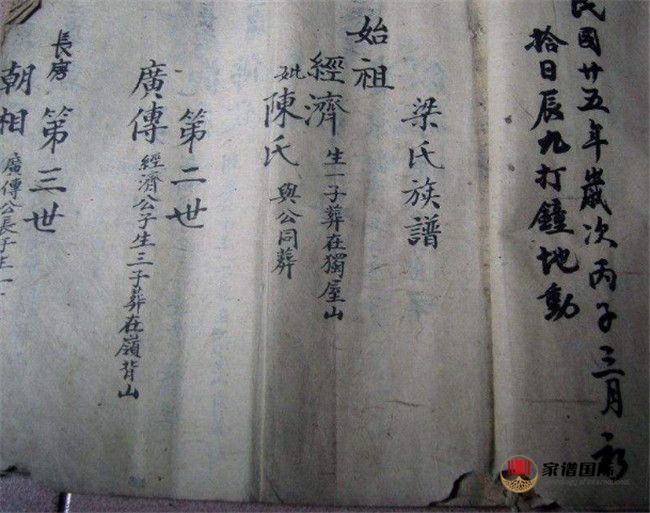 民國廿五年歲次丙子三月初
拾日辰九打鐘地動
梁氏族譜
始祖
經濟 生一子葬在獨屋山
妣陳氏 與公同葬
第二世
廣傳 經濟公子生三子葬在嶺背山
第三世
長房
朝相 廣傳公長子生一
家谱国际